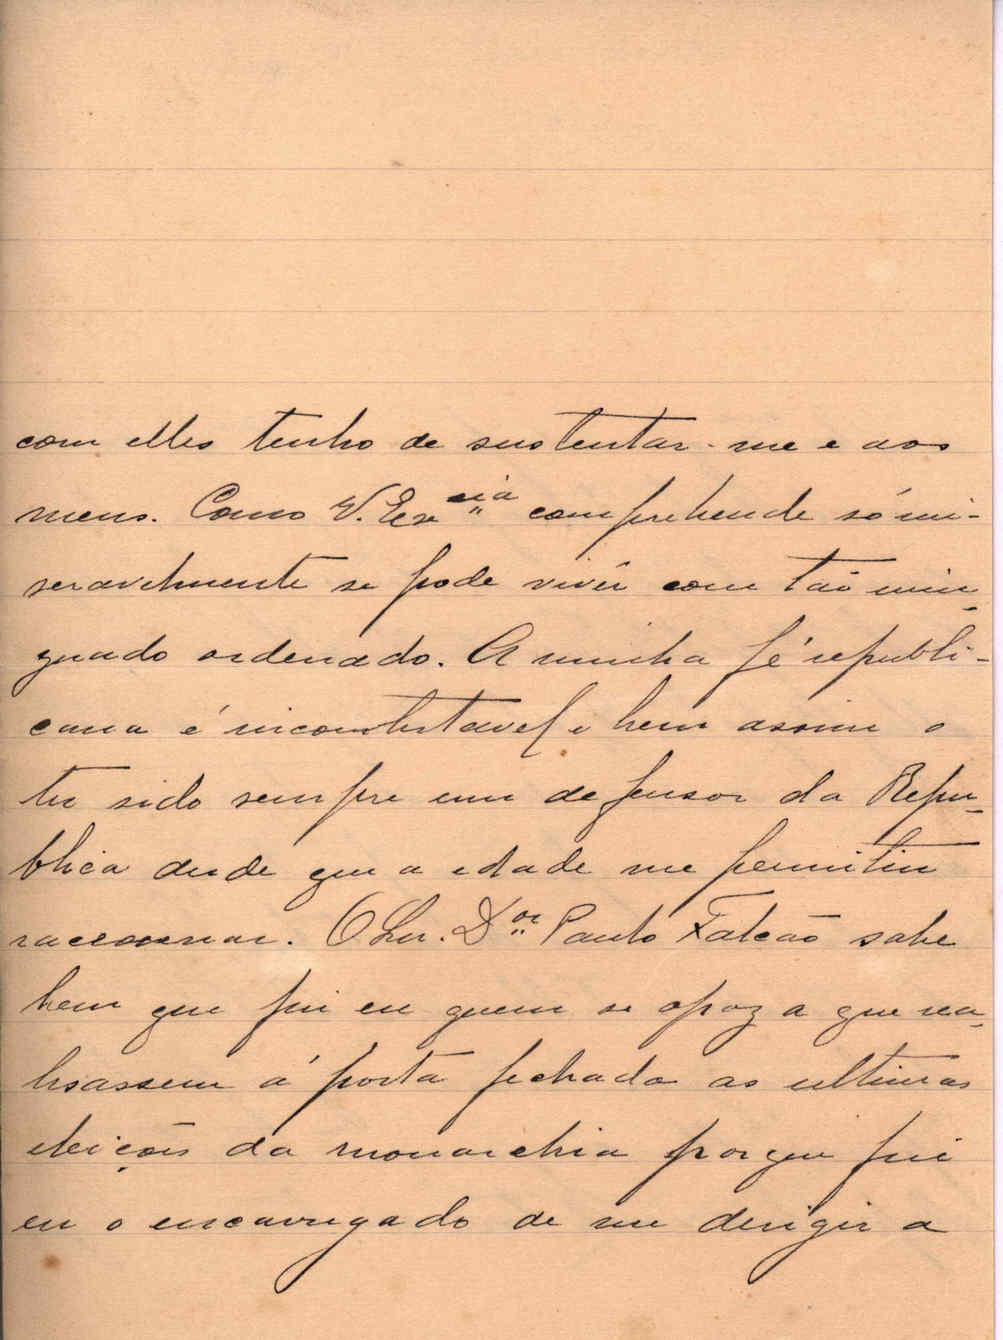 com elles tenho de sustentar-me e aos
meus. Como V. Exª comprehende só mi-
seravelmente se pode vivêr com tão min-
guado ordenado. A minha fé republi-
cana é incontestavel e bem assim o
ter sido sempre um defensor da Repu-
blica desde que a edade me permitiu
raccionar. O Snr. Dor Paulo Falcão sabe
bem que fui eu quem se opoz a que rea-
lisassem á porta fechada as ultimas
eleições da monarchia porque fui
eu o encarregado de me derigir a